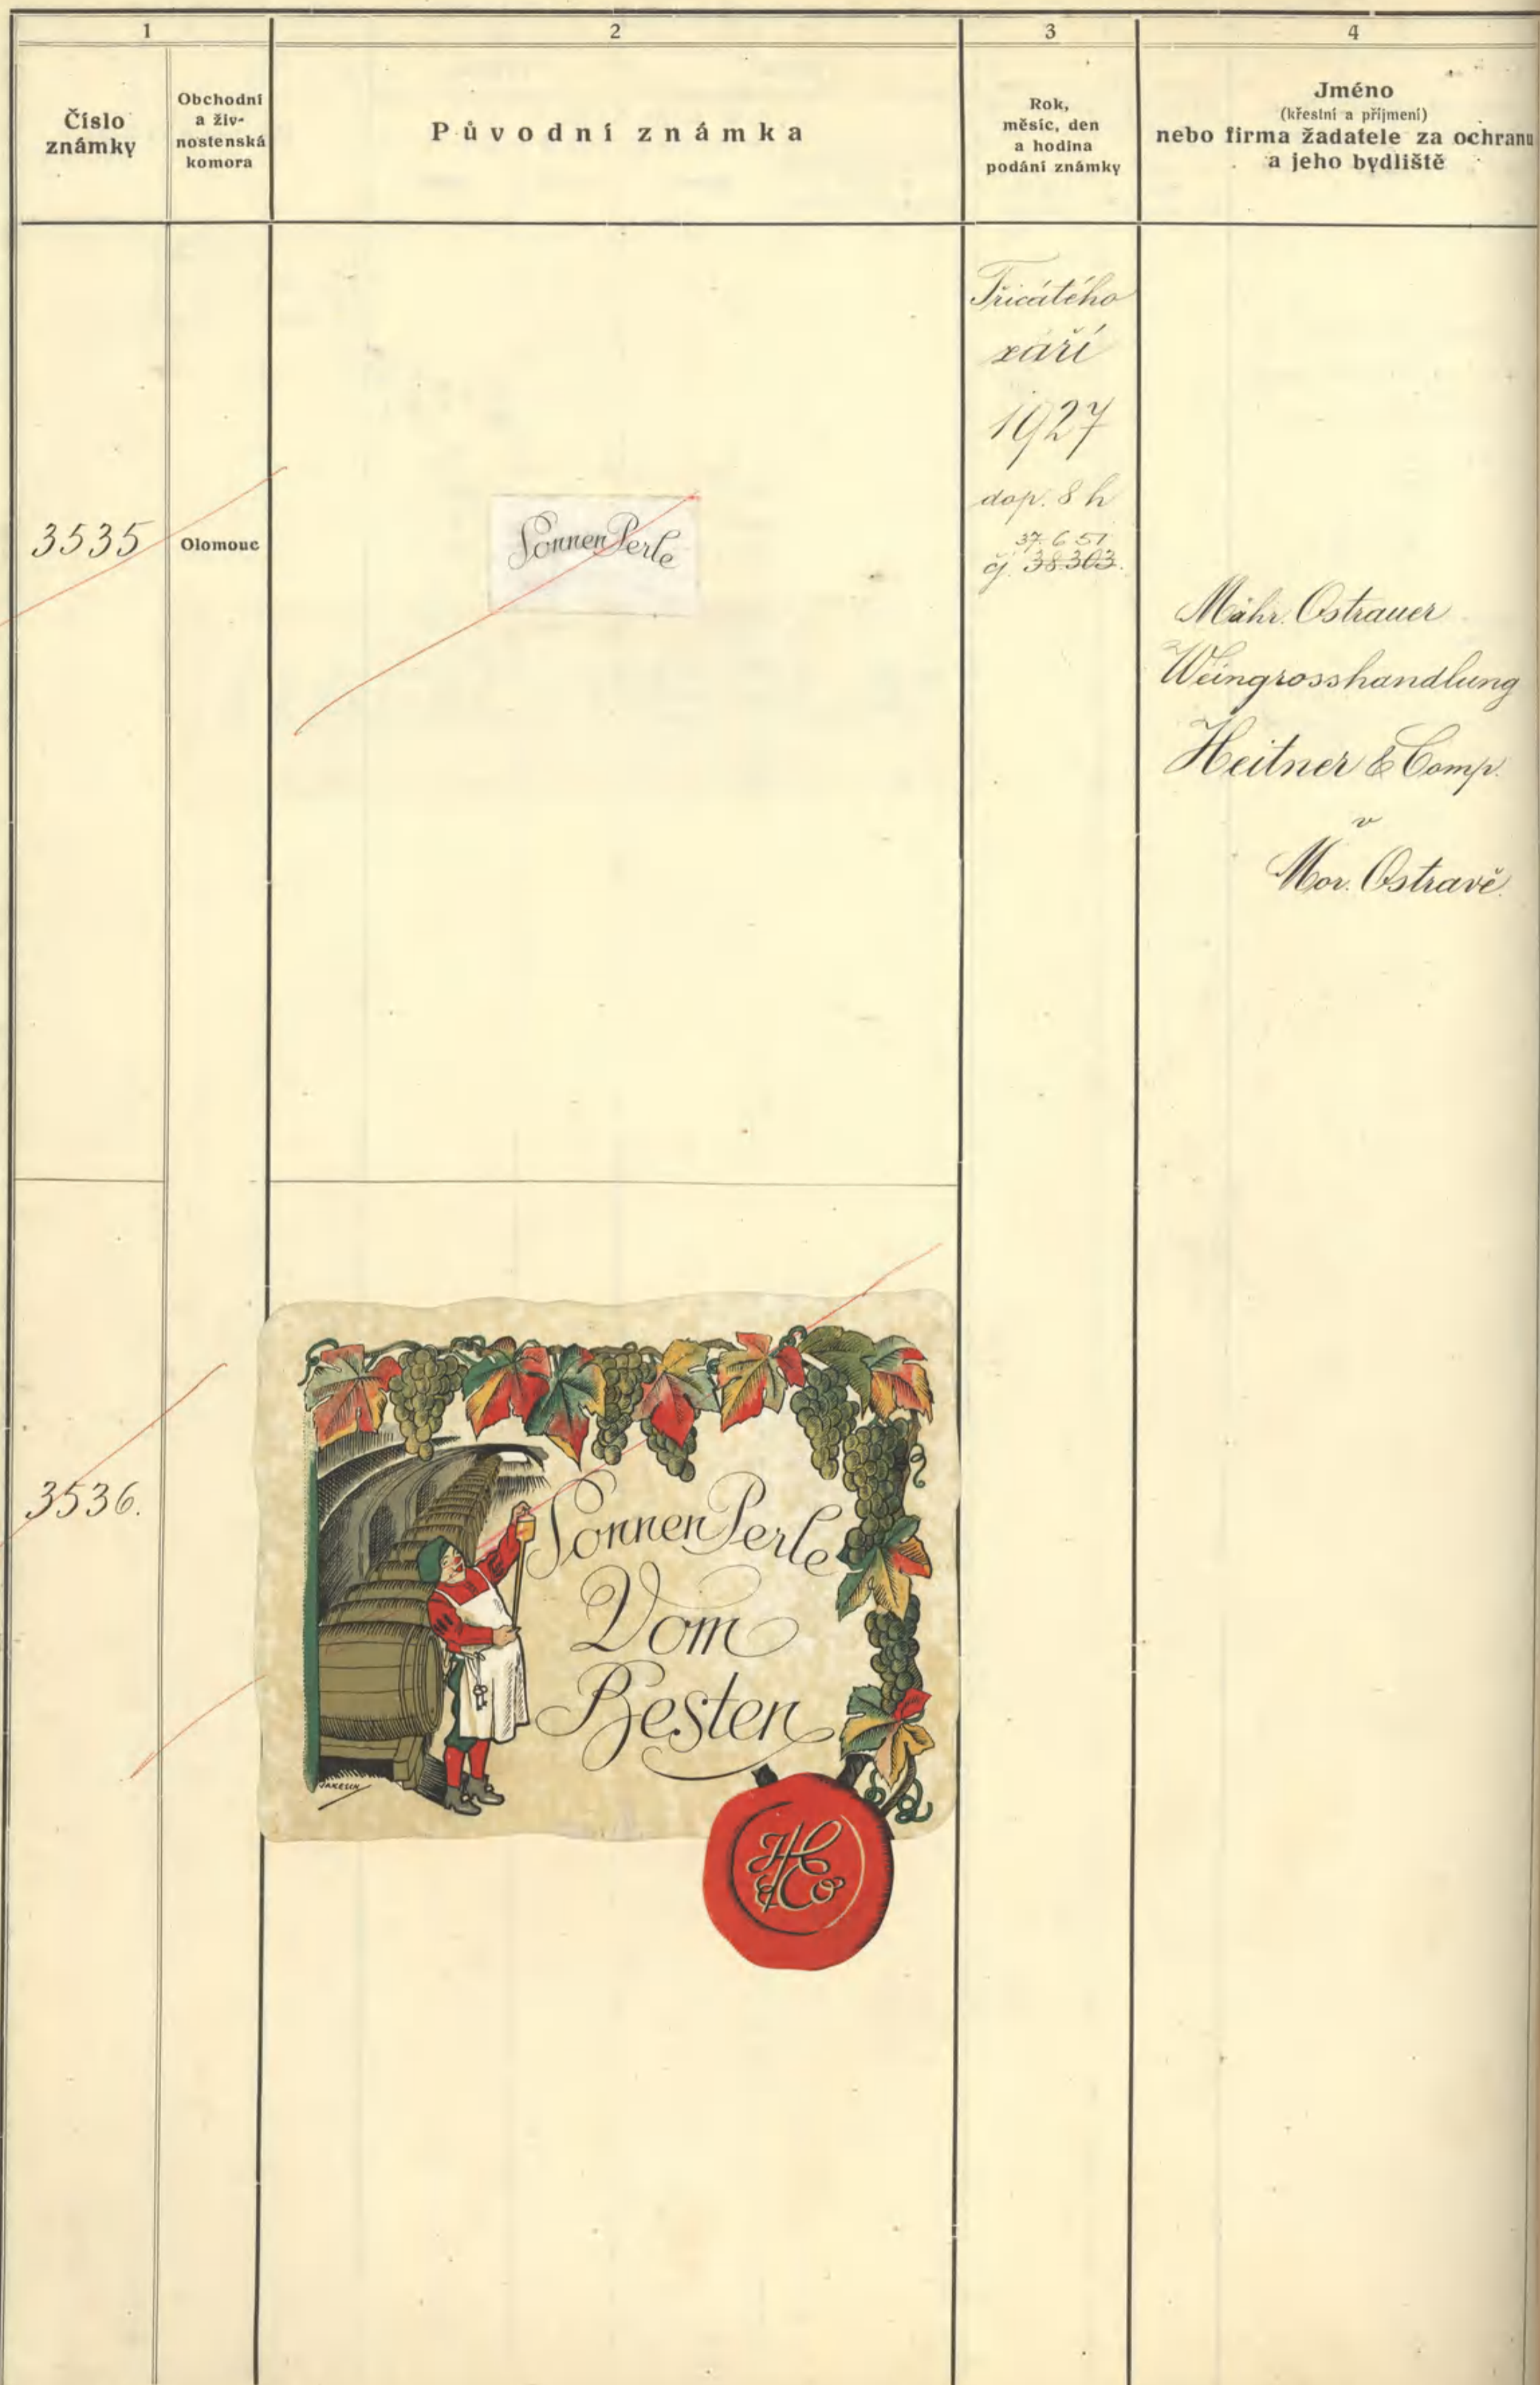 1
2
3
4
Číslo
známky
Obchodní
a živ-
nostenská
komora
Původní známka
Rok,
měsíc, den
a hodina
podání známky
Jméno
(křestní a příjmení)
nebo firma žadatele za ochranu
a jeho bydliště
3535
Olomouc
Sonnen Perle
Třicátého
září
1927
dop. 8 h
37.651
čj. 38.303.
Mähr. Ostrauer
Weingrosshandlung
Heitner & Comp.
v
Mor. Ostravě.
3536.
Sonnen Perle
Vom
Besten
H
& Co